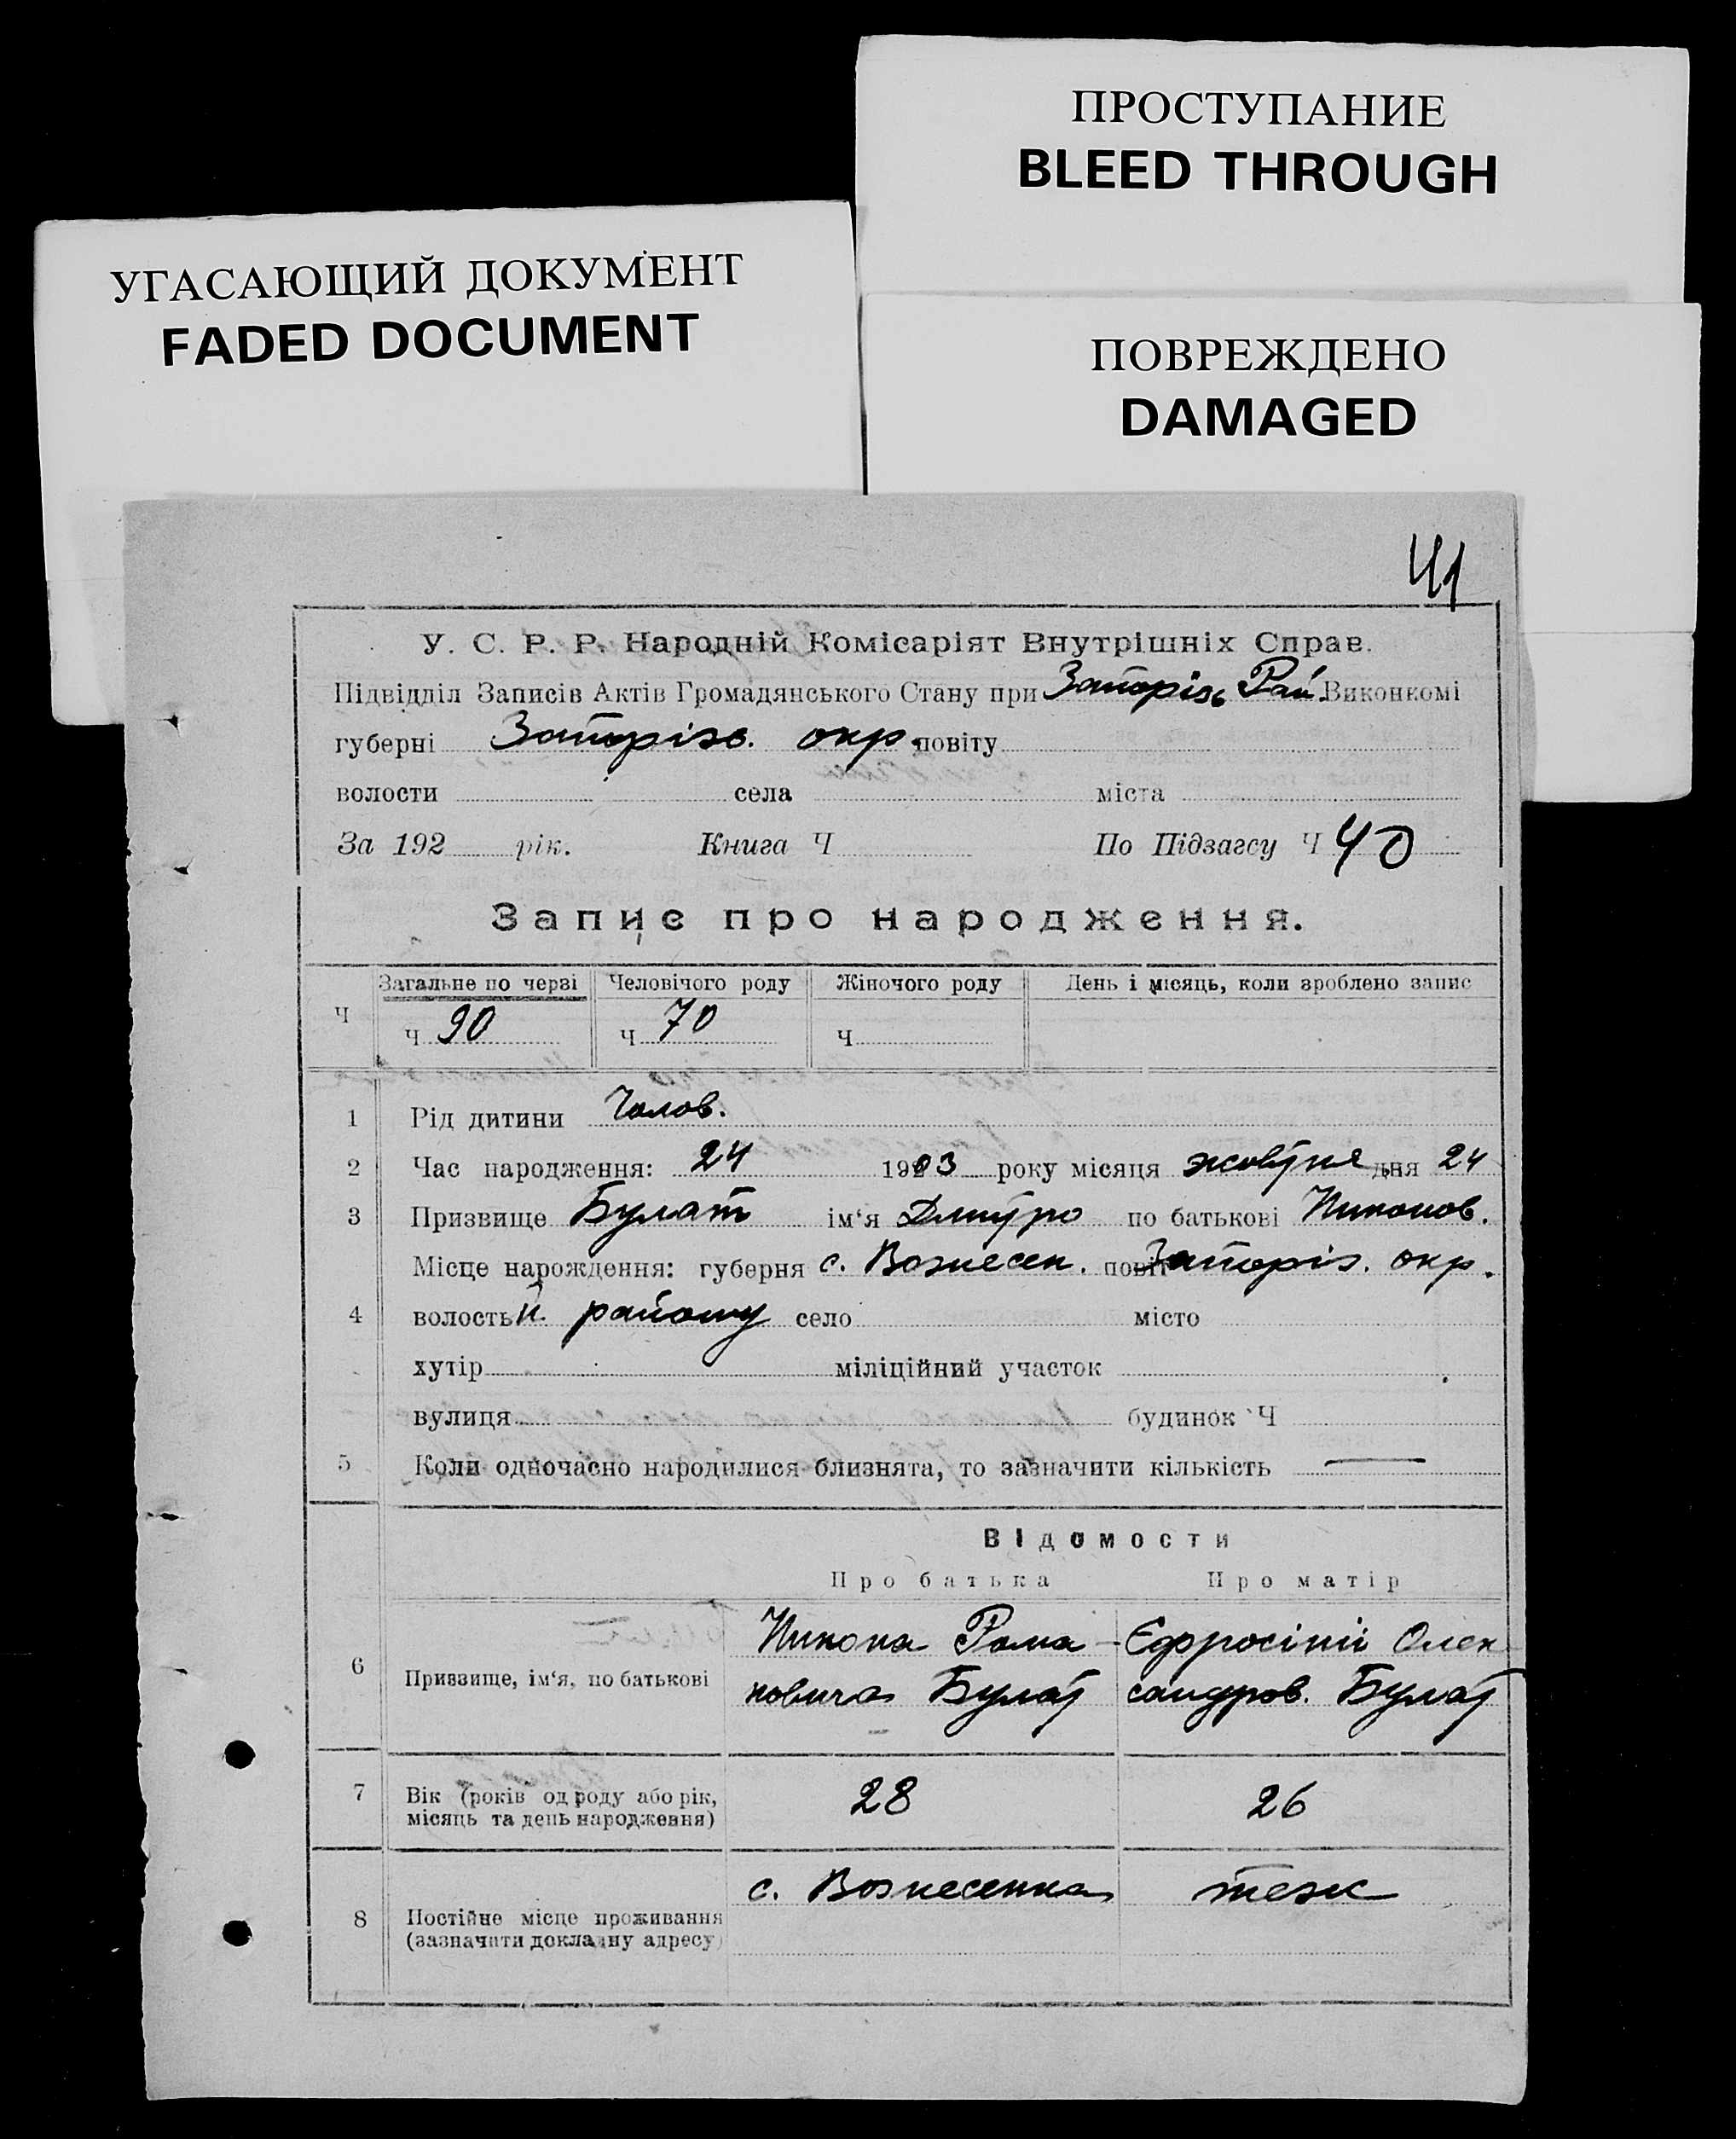 ПРОСТУПАНИЕ
BLEED THROUGH
УГАСАЮЩИЙ ДОКУМЕНТ
FADED DOCUMENT
ПОВРЕЖДЕНО
DAMAGED
41
У. С. Р. Р. Народній Комісаріят Внутрішніх Справ.
Підвідділ Записів Актів Громадянського Стану при Запоріз. Рай. Виконкомі
губерні Запорізь. окр. повіту
волости села міста
За 192 рік. Книга Ч По Підзагсу Ч 40
Запис про народження.
Загальне по черзі Человічого роду Жіночого роду День і місяць, коли зроблено запис
Ч Ч 90 Ч 70 Ч
1 Рід дитини Чолов.
2 Час народження: 24 1903 року місяця жовтня дня 24
3 Призвище Булат ім‘я Дмитро по батькові Никонов.
Місце нарождення: губерня с. Вознесен. повіт Запоріз. окр.
4 волость й. району село місто
хутір міліційний участок
вулиця будинок Ч
5 Коли одночасно народилися близнята, то зазначити кількість —
Відомости
Про батька Про матір
Никона Рома- Єфросінії Олек
6 Призвище, ім‘я, по батькові новича Булат сандров. Булат
7 Вік (років од роду або рік, 28 26
місяць та день народження)
с. Вознесенка теж
8 Постійне місце проживання
(зазначити докладну адресу)